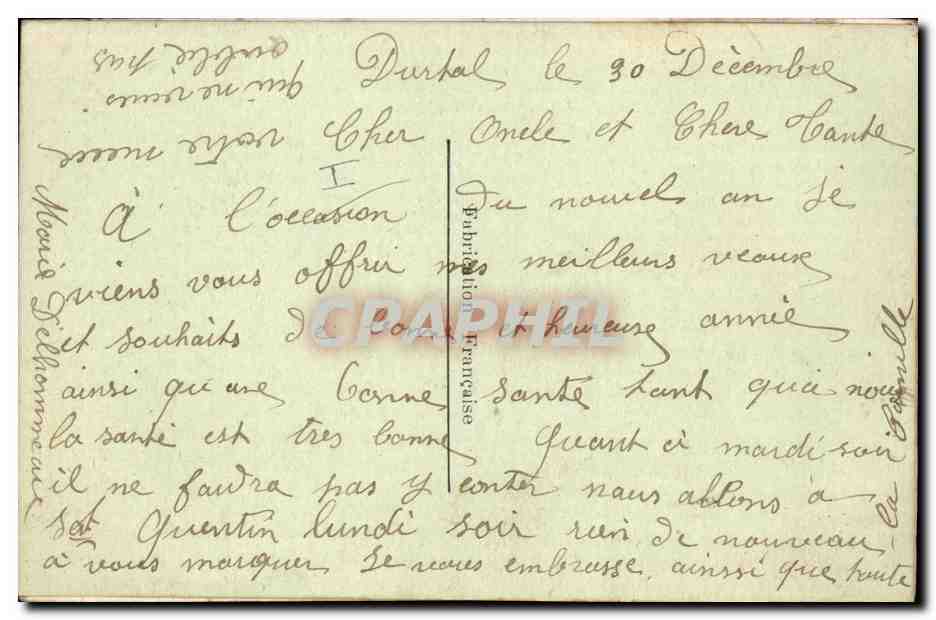 Durtal le 30 Décembre
Cher Oncle et Chere Tante
I
À l'occasion du nouvel an je
viens vous offrir mes meilleurs veaux
et souhaits de bonne et heureuse année
ainsi qu'une bonne santé tant qu'a nous
la santé est très bonne Quant à mardi soir
il ne faudra pas y conter nous allons à
St Quentin lundi soir rien de nouveau
à vous marquer Je vous embrasse ainssi que toute
la famille
votre niece
qui ne vous
oublie pas
Marie Delhommeau
Fabrication Française
CPAPHIL